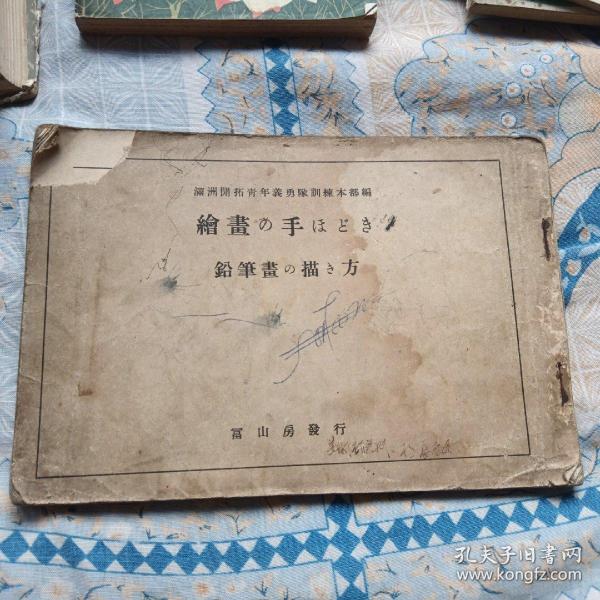 滿洲開拓靑年義勇隊訓練本部編
繪畫の手ほどき
鉛筆畫の描き方
冨山房發行
孔夫子旧書网
www.kongfz.com